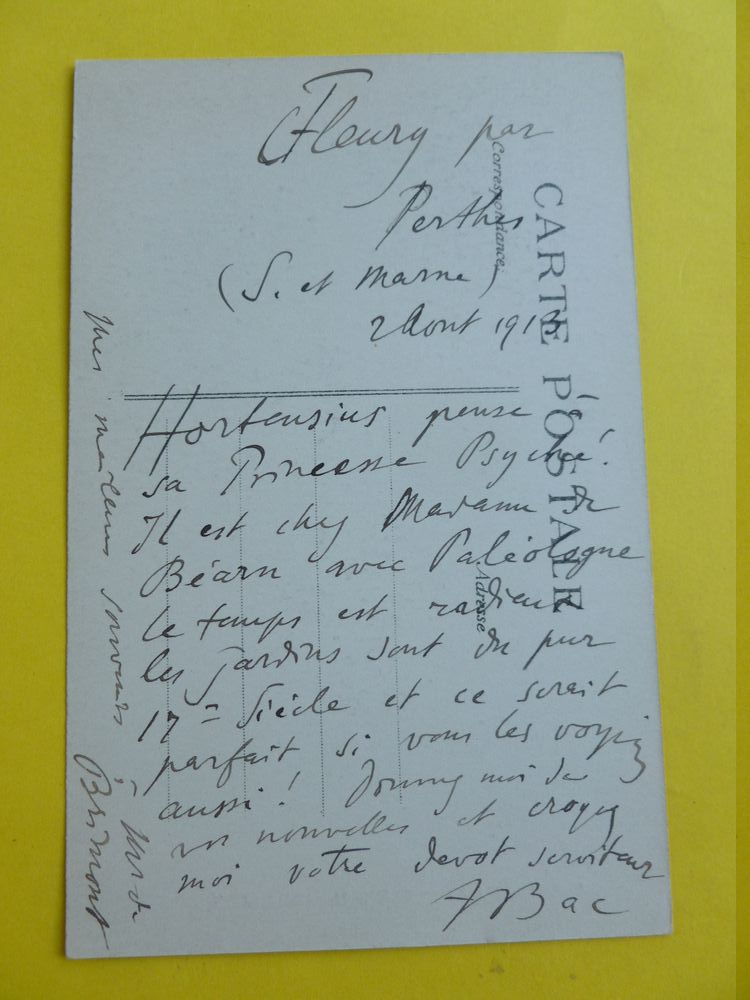 Fleury par
Perthes
(S. et Marne)
2 Aout 1913
CARTE POSTALE
Correspondance
Adresse
Hortensius pense à
sa Princesse Psyché!
Il est chez Madame de
Béarn avec Paléologue
le temps est radieux
les jardins sont du pur
17e Siècle et ce serait
parfait si vous les voyiez
aussi! Donnez moi de
vos nouvelles et croyez
moi votre devot serviteur
FBac
mes meilleurs souvenirs à
Brimont